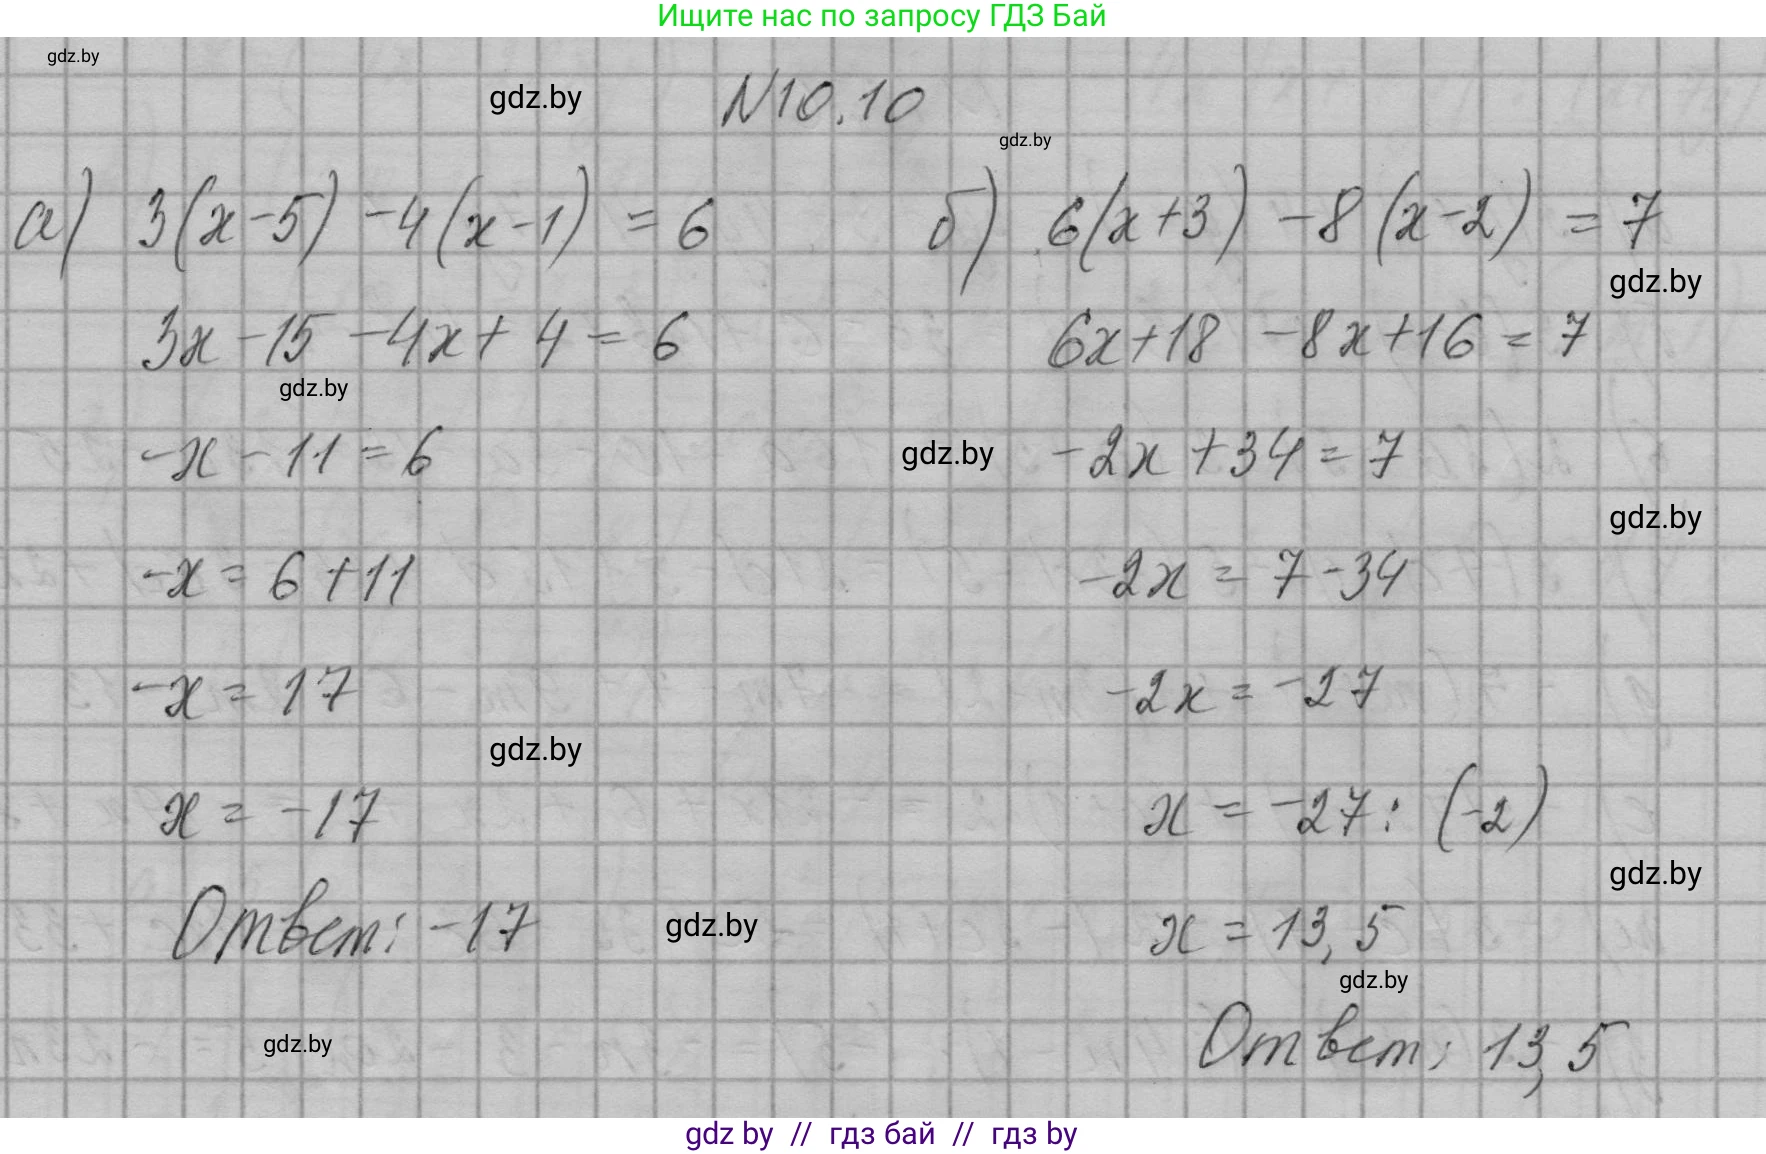 Ищите нас по запросу ГДЗ Бай
gdz.by
gdz.by
N10.10
gdz.by
а) 3(x-5) -4(x-1) = 6
3x-15-4x+4=6
gdz.by
-x-11=6
-x=6+11
-x=17
gdz.by
x=-17
Ответ: -17
gdz.by
gdz.by
б) 6(x+3) -8(x-2) = 7
gdz.by
6x+18 -8x+16=7
gdz.by
-2x+34=7
gdz.by
-2x=7-34
-2x=-27
x=-27:(-2)
gdz.by
x=13,5
gdz.by
Ответ: 13,5
gdz by // гдз бай // гдз by